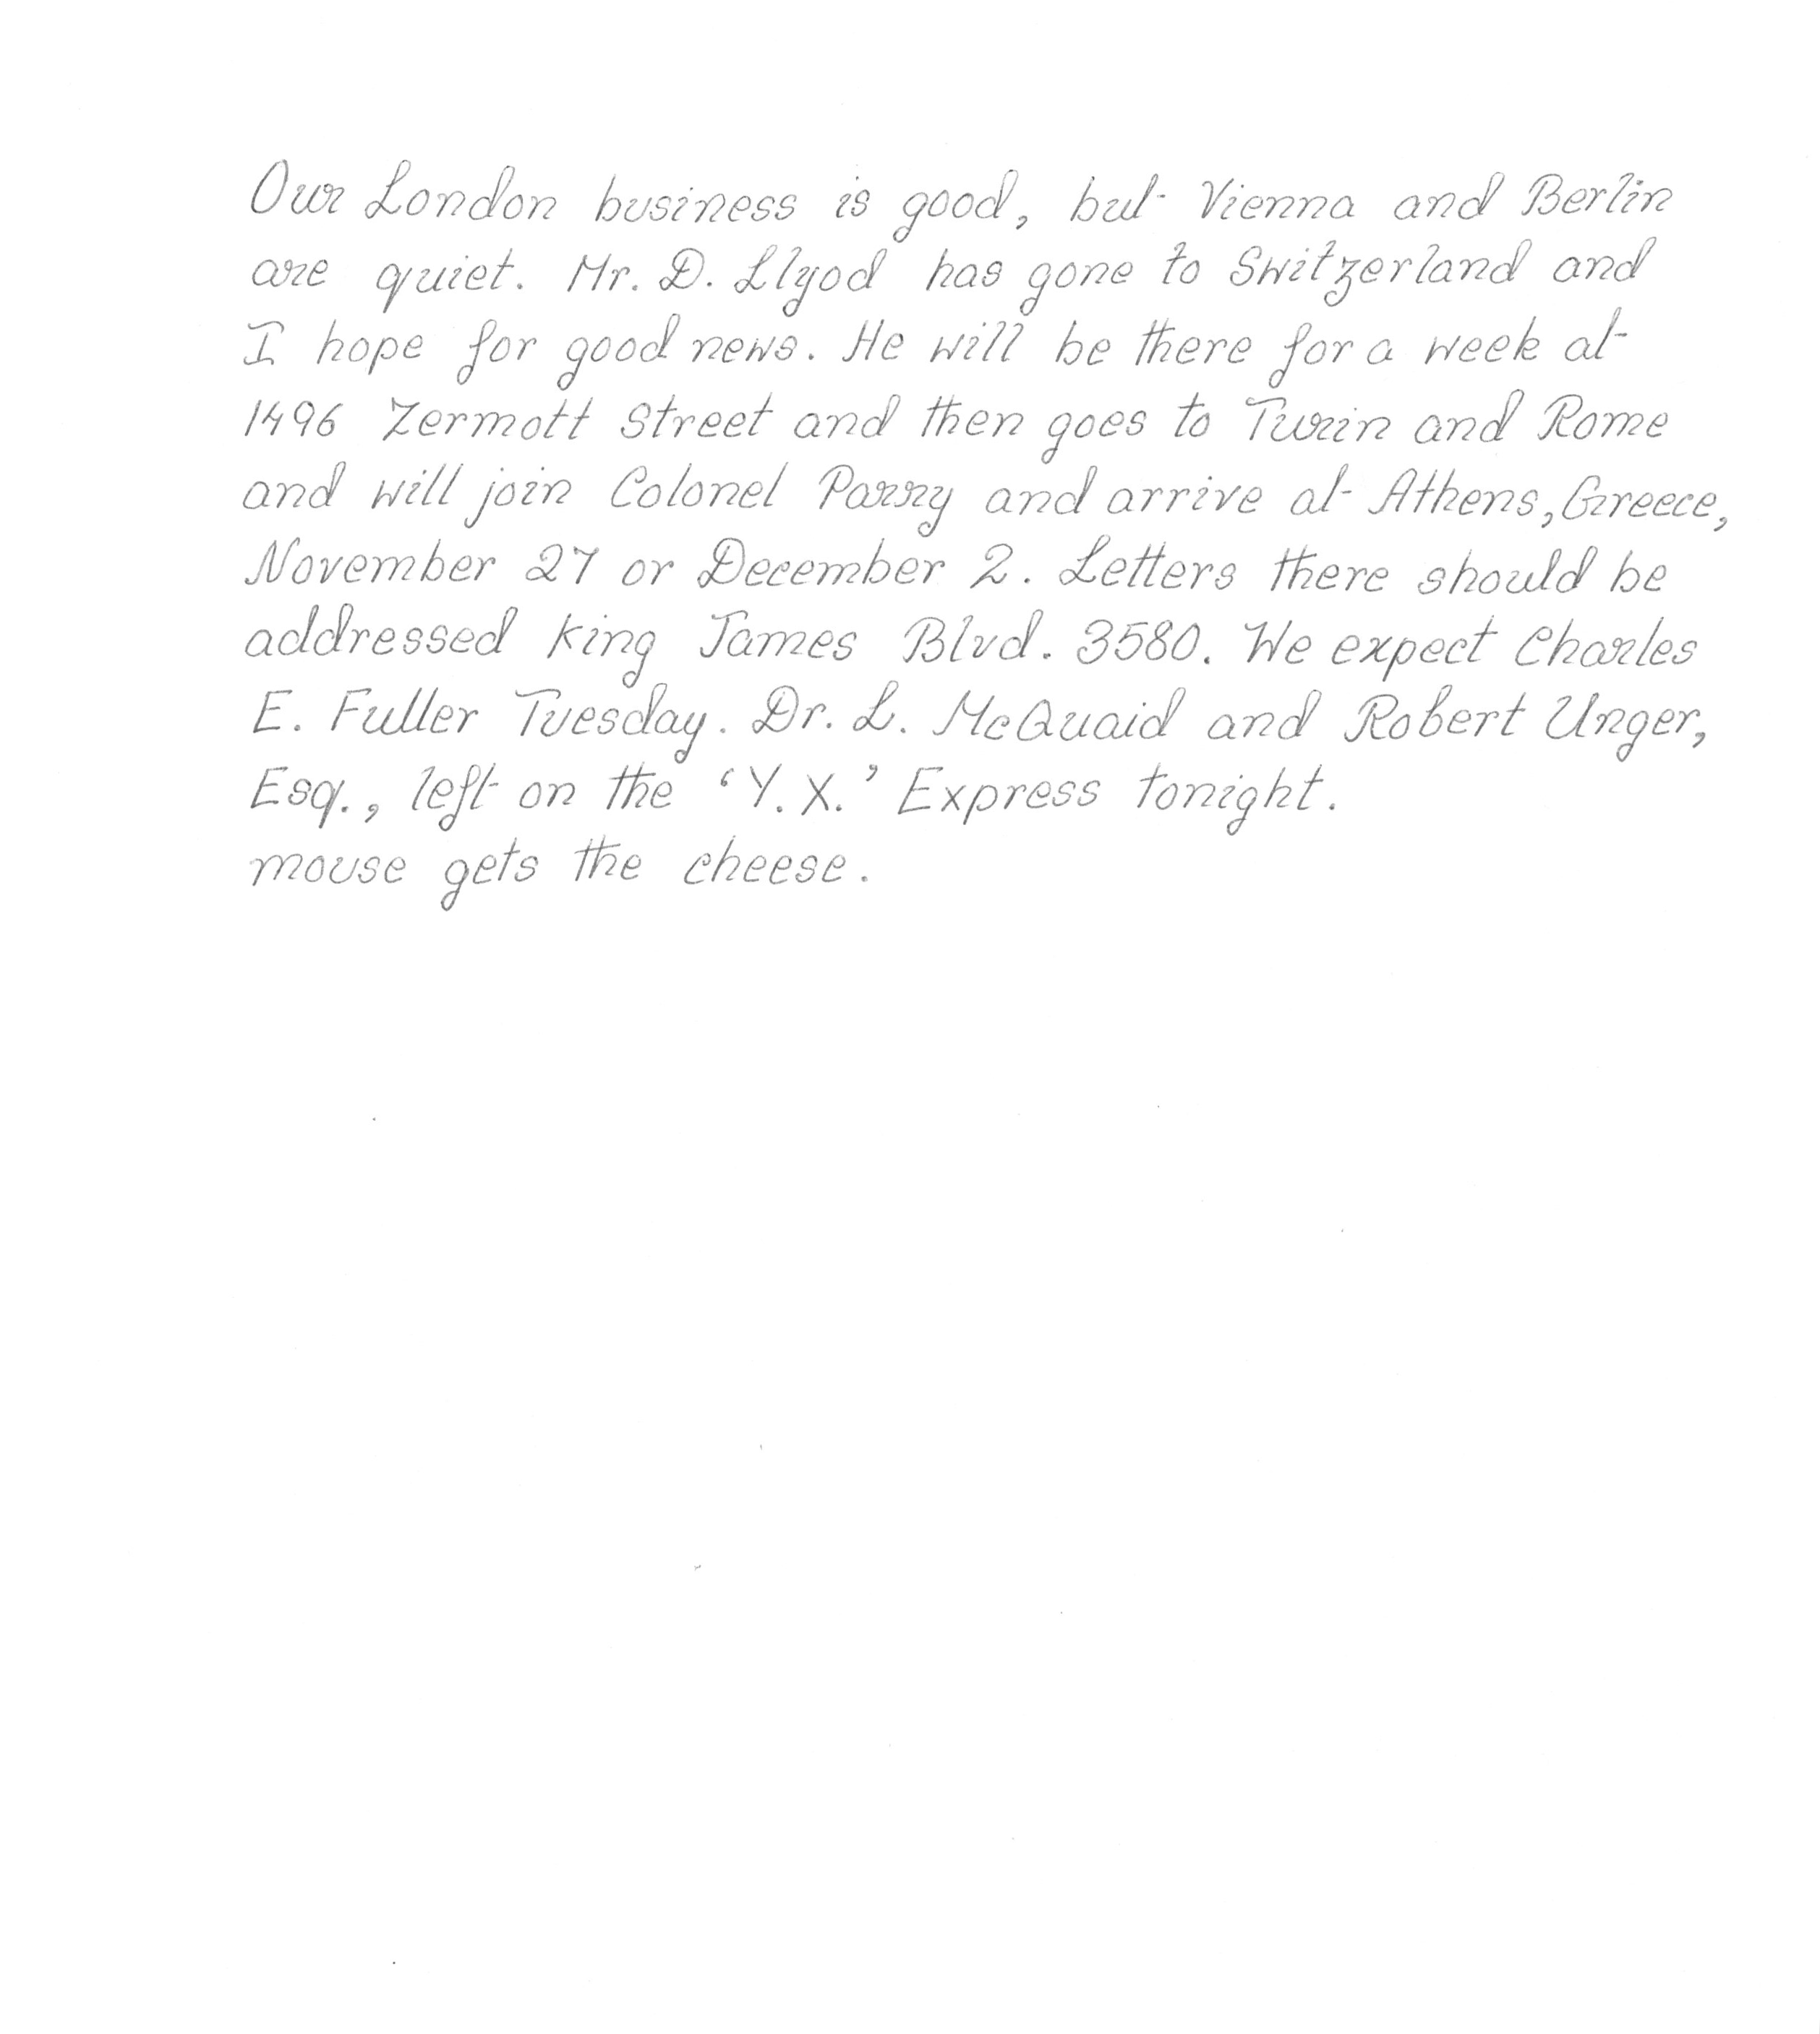 Our London business is good, but Vienna and Berlin
are quiet. Mr. D. Llyod has gone to Switzerland and
I hope for good news. He will be there for a week at
1496 Zermott Street and then goes to Turin and Rome
and will join Colonel Parry and arrive at Athens, Greece,
November 27 or December 2. Letters there should be
addressed King James Blvd. 3580. We expect Charles
E. Fuller Tuesday. Dr. L. McQuaid and Robert Unger,
Esq., left on the ‘Y. X.’ Express tonight.
mouse gets the cheese.